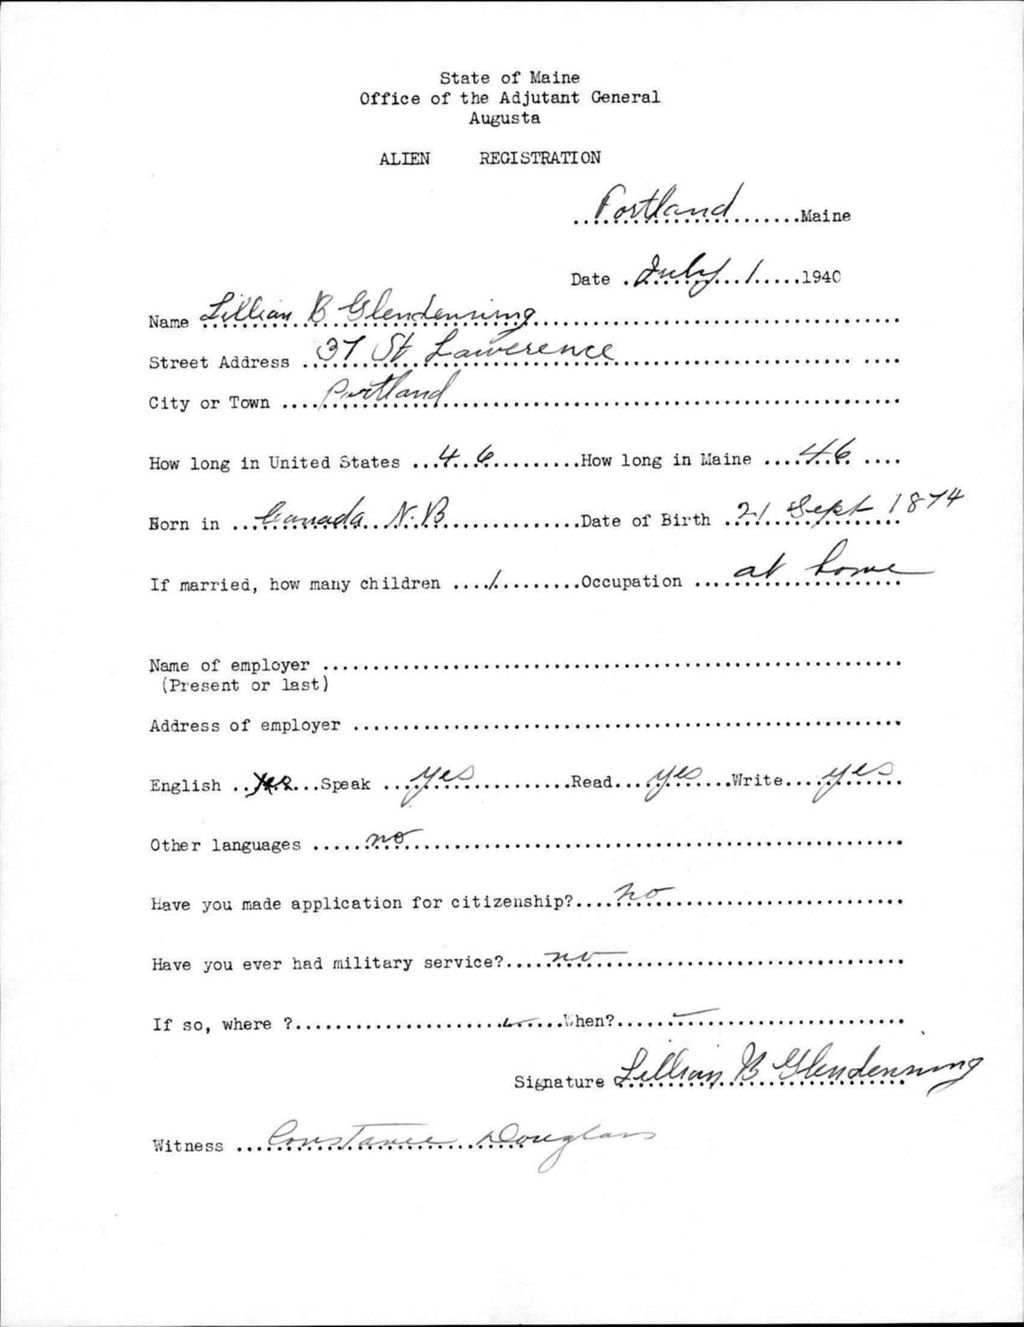 State of Maine
Office of the Adjutant General
Augusta
ALIEN REGISTRATION
Portland Maine
Date July 1 1940
Name Lillian B Glendenning
Street Address 37 St Lawerence
City or Town Portland
How long in United States 46 How long in Maine 46
Born in Canada N.B Date of Birth 21 Sept 1874
If married, how many children 1 Occupation at home
Name of employer
(Present or last)
Address of employer
English yes Speak yes Read yes Write yes
Other languages no
Have you made application for citizenship? no
Have you ever had military service? no
If so, where ? When?
Signature Lillian B Glendenning
Witness Constance Douglass